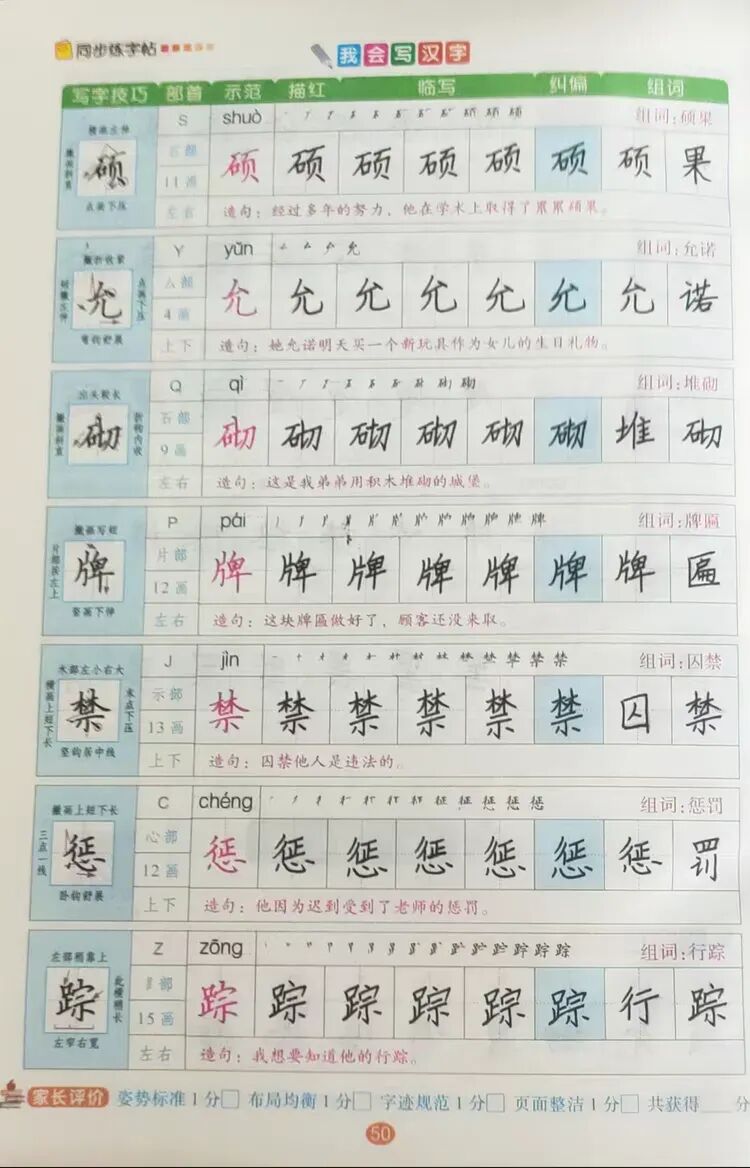 同步练字帖
我会写汉字
写字技巧 部首 示范 描红 临写 纠偏 组词
横画左伸 S shuò 组词:硕果
撇画斜直 硕 石部 硕 硕 硕 硕 硕 硕 硕 果
11画
点画下压 左右 造句:经过多年的努力,他在学术上取得了累累硕果。
撇折收紧 Y yǔn 组词:允诺
短撇左伸 允 点画下压 厶部 允 允 允 允 允 允 允 诺
4画
弯钩舒展 上下 造句:她允诺明天买一个新玩具作为女儿的生日礼物。
出头较长 Q qì 组词:堆砌
撇画斜直 砌 折钩内收 石部 砌 砌 砌 砌 砌 砌 堆 砌
9画
左右 造句:这是我弟弟用积木堆砌的城堡。
撇画写短 P pái 组词:牌匾
片部按左上 牌 片部 牌 牌 牌 牌 牌 牌 牌 匾
12画
竖画下伸 左右 造句:这块牌匾做好了,顾客还没来取。
木部左小右大 J jìn 组词:囚禁
横画上短下长 禁 末点下压 示部 禁 禁 禁 禁 禁 禁 囚 禁
13画
竖钩居中线 上下 造句:囚禁他人是违法的。
撇画上短下长 C chéng 组词:惩罚
三点一线 惩 心部 惩 惩 惩 惩 惩 惩 惩 罚
12画
卧钩舒展 上下 造句:他因为迟到受到了老师的惩罚。
左部稍靠上 Z zōng 组词:行踪
踪 此横稍长 踪 踪 踪 踪 踪 踪 行 踪
15画
左窄右宽 左右 造句:我想要知道他的行踪。
家长评价 姿势标准1分□ 布局均衡1分□ 字迹规范1分□ 页面整洁1分□ 共获得___分
50